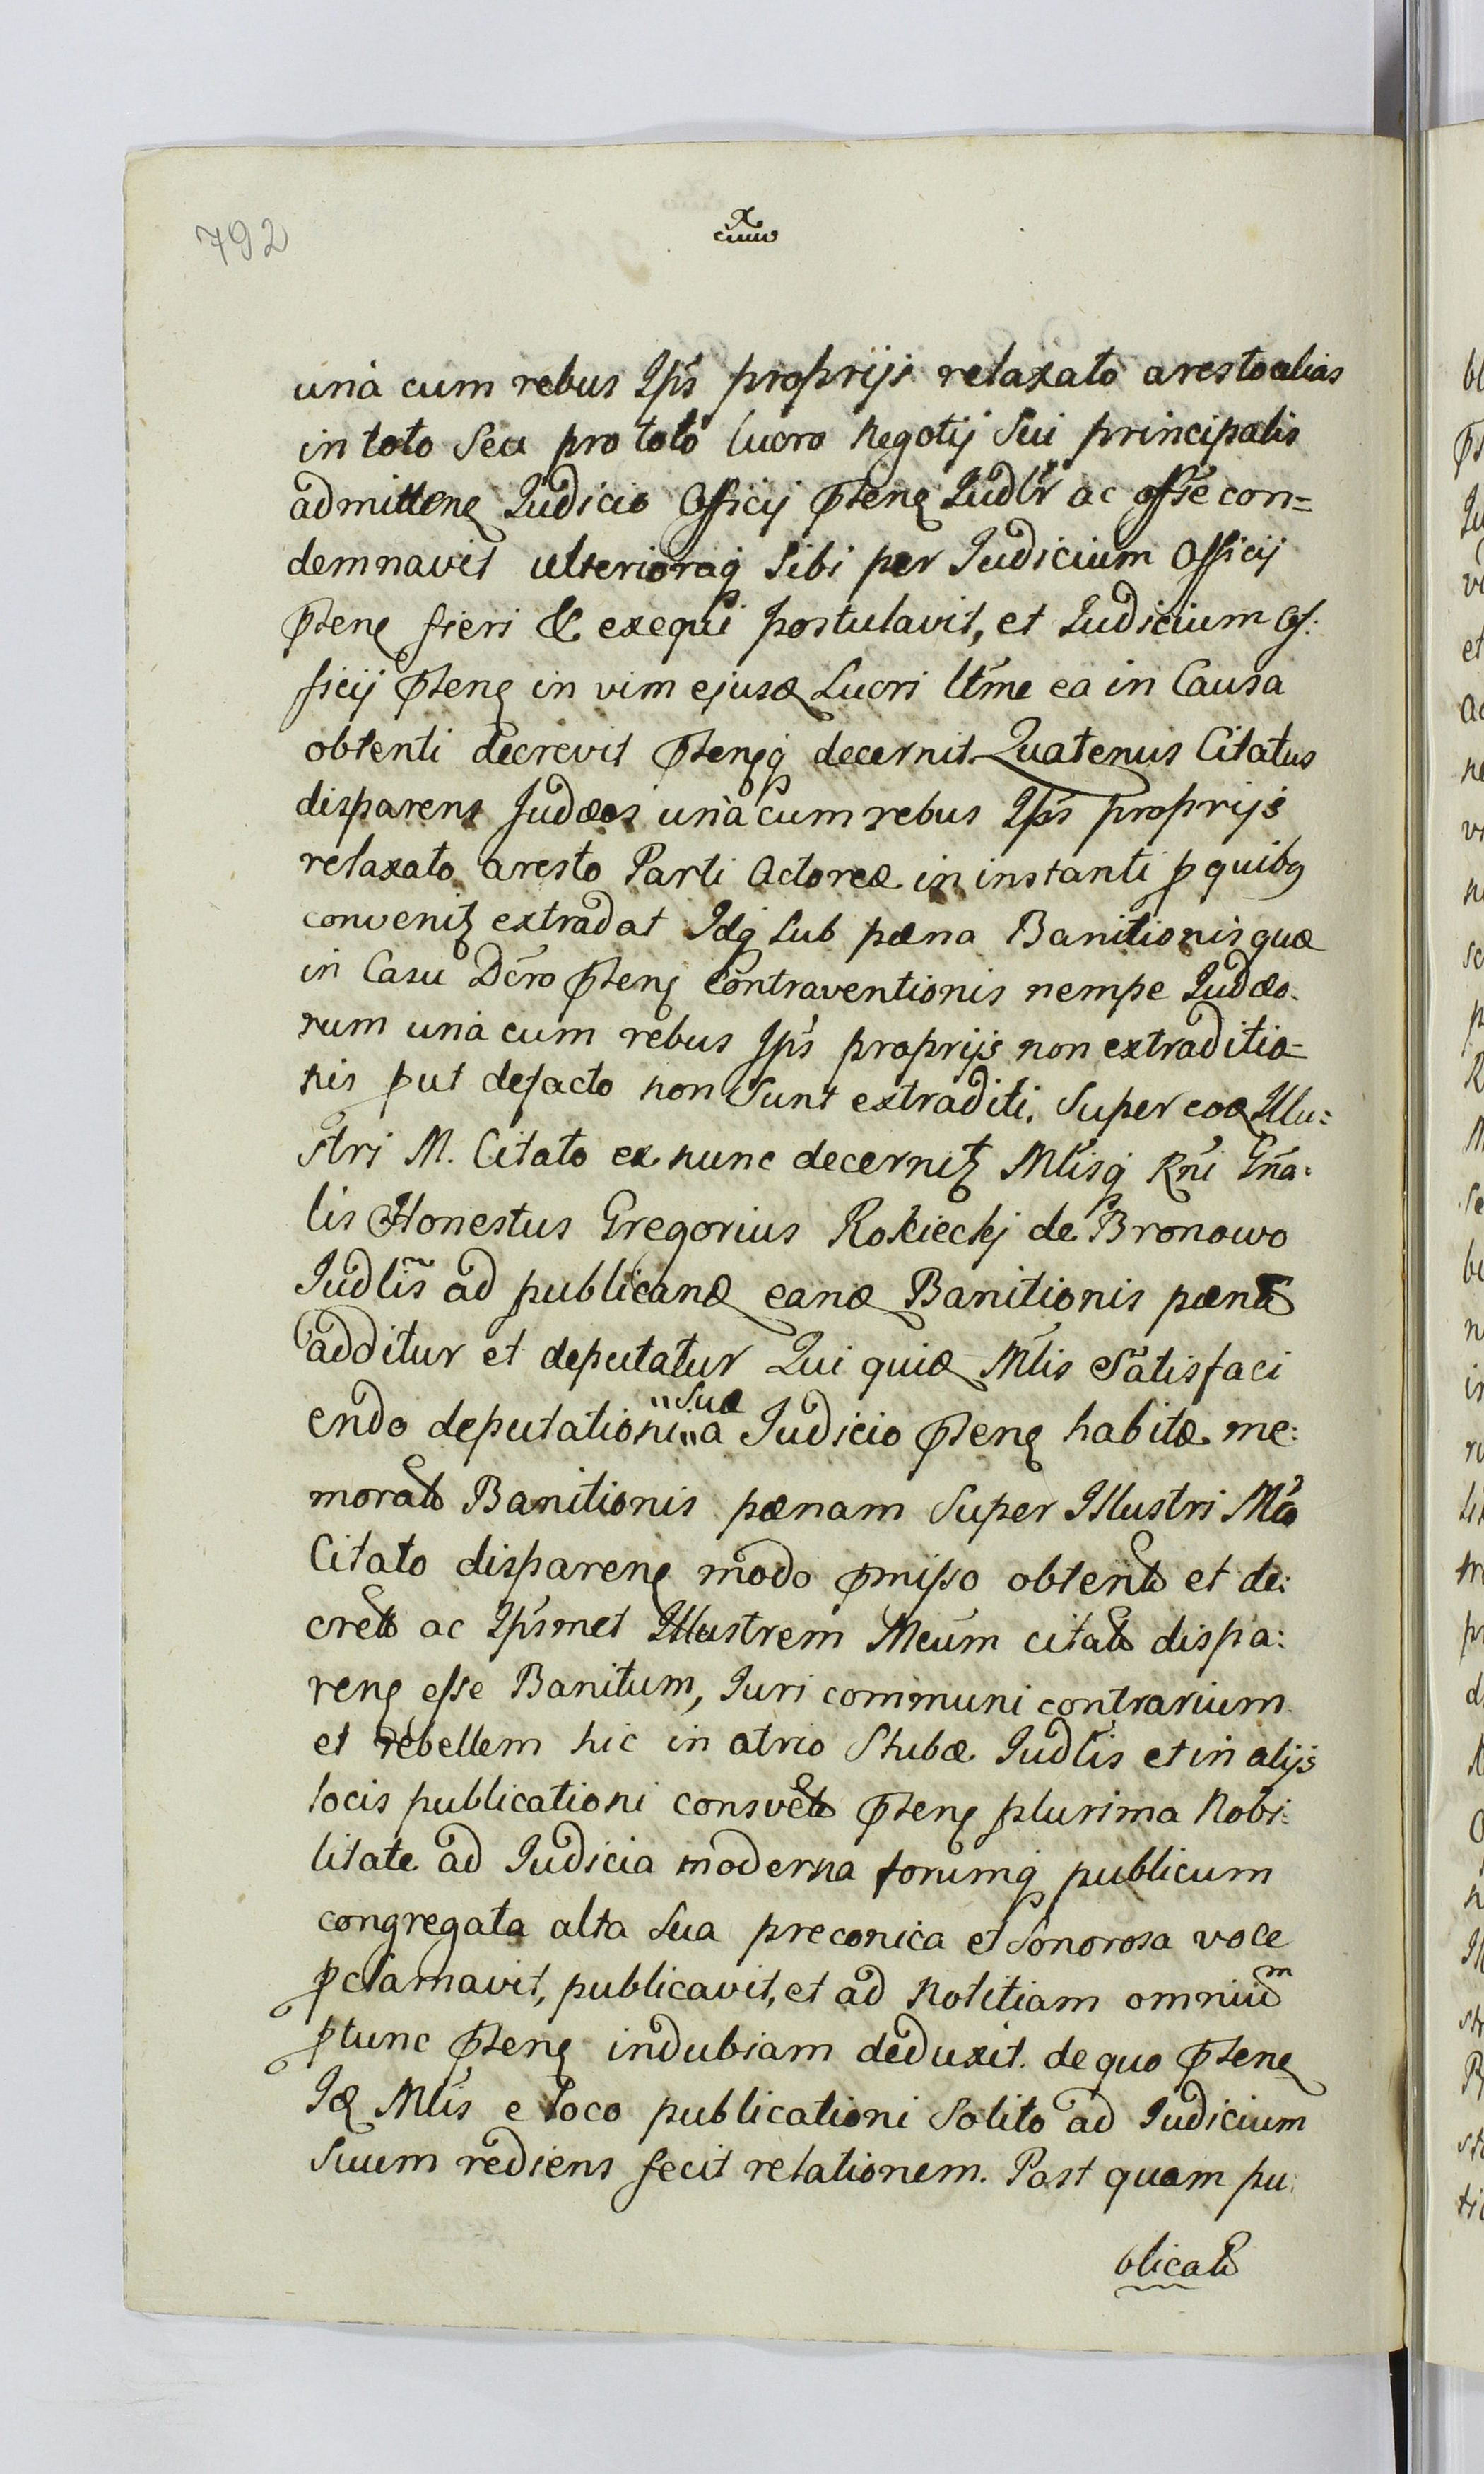 792
unà cum rebus Ips̃ proprijs relaxato aresto alias
in toto Seu pro toto lucro Negotij Sui principalis
admitten Judicio Officij pñten Judlr̃ ac offse con=
demnavit ulterioraq Sibi per Judicium Officij
pñten fieri & exequi postulavit, et Judicium Of:
ficij pñten in vim ejusd Lucri ltm̃e ea in Causa
obtenti decrevit pñtenq decernit Quatenus Citatus
disparens Judæos unà cum rebus Ips̃ proprijs
relaxato aresto Parti Actoreæ in instanti p quibq
convenit extradat Idq Sub pæna Banitionis quæ
in Casu Dcr̃o pñten Contraventionis nempe Judæo.
rum unà cum rebus Ips̃ proprijs non extraditio=
nis put defacto non Sunt extraditi. Super eod Illu:
stri M. Citato ex nunc decernit Mlĩsq Rñi Gña:
lis Honestus Gregorius Rokieckj de Bronowo
Judlĩs ad publicand eand Banitionis pænã
additur et deputatur Qui quid Mlĩs Satisfaci
endo deputationi "Suæ" a Judicio pñten habitæ me:
morat Banitionis pænam Super Illustri Mco
Citato disparen modo pmisso obtent et de:
cret ac Ips̃met Illustrem Mcum citat dispa:
ren esse Banitum, Juri communi contrarium
et rebellem hic in atrio Stubæ Judlĩs et in alijs
locis publicationi consvet pñten plurima Nobi:
litate ad Judicia moderna forumq publicum
congregata alta Sua preconica et Sonorosa voce
pclamavit, publicavit, et ad Notitiam omniũm
ptunc pñten indubiam deduxit. de quo pñten
Id Mlĩs e loco publicationi Solito ad Judicium
Suum rediens fecit relationem. Post quam pu:
blicat